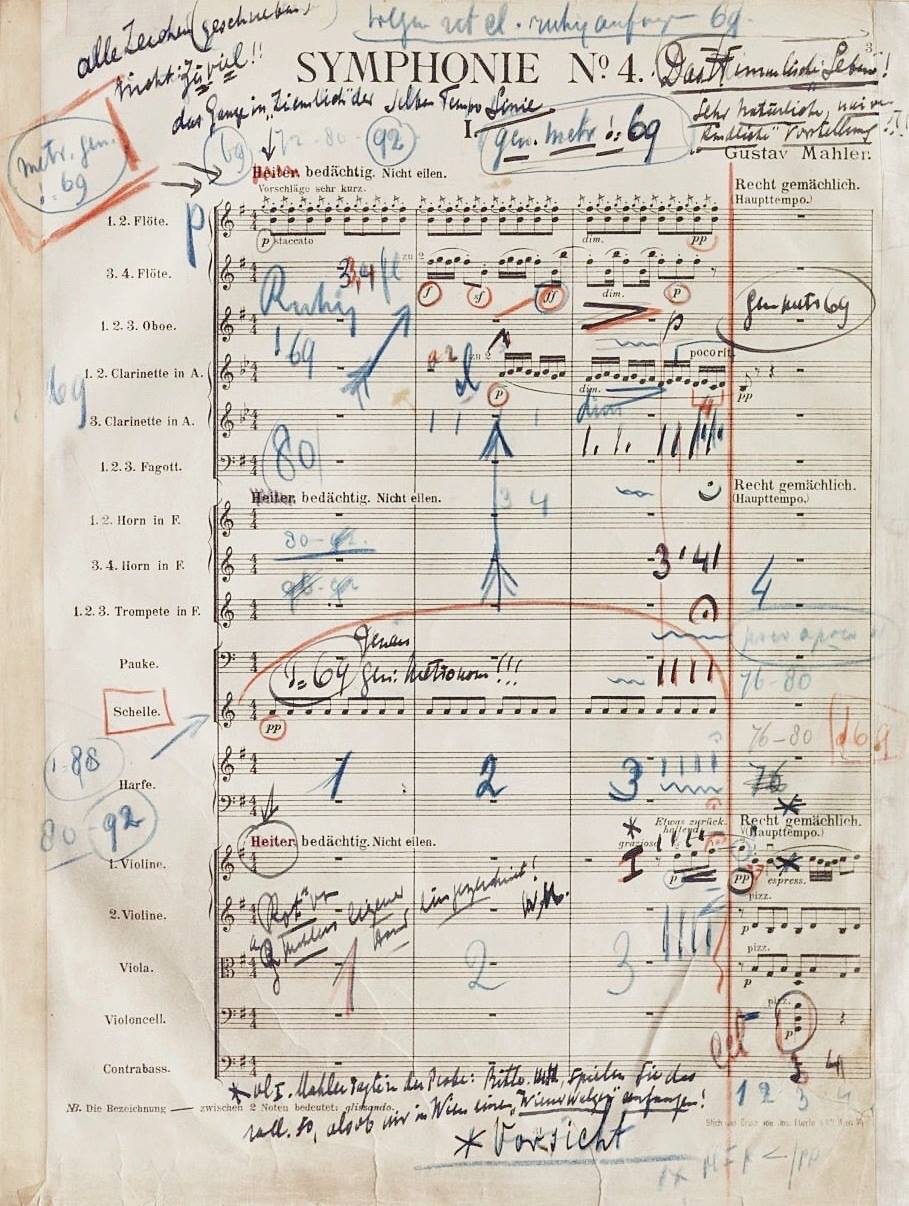 69
alle Zeichen (geschrieben)
nicht: zu viel!!
3
SYMPHONIE Nº 4. Das Himmlische Leben!
das Ganze in "ziemlich" der selben Tempo Linie
I. gen. metr. 69
Sehr natürliche, naive
kindliche Vorstellung
Gustav Mahler.
metr. gen.
69
69 72 - 80 - 92
Heiter, bedächtig. Nicht eilen.
Vorschläge sehr kurz.
Recht gemächlich.
(Haupttempo.)
1. 2. Flöte.
p
p staccato
dim.
pp
3. 4. Flöte.
3,4 fl
zu 2
f
sf
ff
dim.
p
Ruhig
69
1. 2. 3. Oboe.
p
69
1. 2. Clarinette in A.
a 2
zu 2
p
dim.
poco rit.
pp
3. Clarinette in A.
dim
80
1. 2. 3. Fagott.
Heiter, bedächtig. Nicht eilen.
Recht gemächlich.
(Haupttempo.)
1. 2. Horn in F.
3 4
80-92
3. 4. Horn in F.
3 4
4
1. 2. 3. Trompete in F.
poco a poco
Pauke.
69 gen. Metronom!!!
76-80
Schelle.
pp
76-80
69
88
Harfe.
1 2 3
76
80 - 92
Heiter, bedächtig. Nicht eilen.
Etwas zurück-
haltend
Recht gemächlich.
(Haupttempo.)
1. Violine.
grazioso
I
p
pp
espress.
2. Violine.
"Rot" von
Mahlers eigener Hand eingezeichnet!
W.M.
pizz.
p
Viola.
1 2 3
pizz.
p
Violoncell.
pizz.
p
Cel
Contrabass.
* Vl I. Mahler sagte in der Probe: Bitte, spielen Sie das
1 2 3 4
NB. Die Bezeichnung — zwischen 2 Noten bedeutet: glissando.
rall. so, als ob wir in Wien einen "Wiener Walzer" anfangen!
* Vorsicht